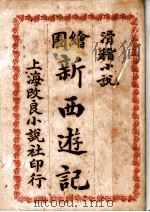 繪圖
滑稽小說
新西遊記
上海改良小說社印行